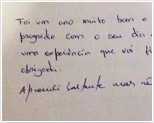 Foi um ano muito bom e
pregado com o seu dia
uma experiência que vai
obrigada.
Aprendi bastante mas não